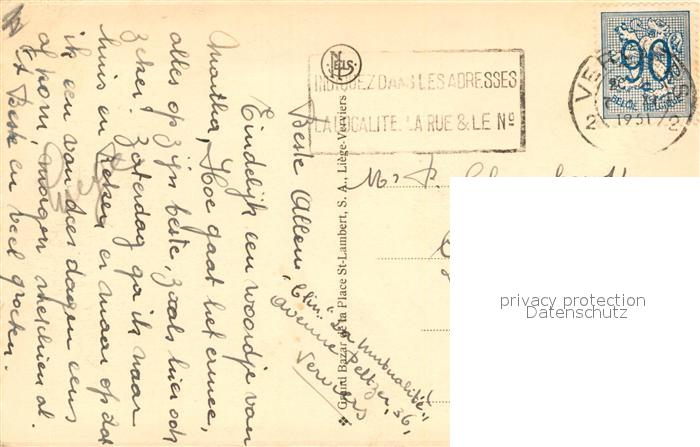 Beste Allen,
Eindelijk een woordje van
Martha. Hoe gaat het ermee,
alles op zijn beste, zoals hier ook
zeker. Zaterdag ga ik naar
huis en reken er maar op dat
ik een van deez dagen eens
af kom, morgen misschien al.
't Beste en veel groeten.
Clin. "La Mutualité"
Avenue Peltzer, 36,
Verviers
Grand Bazar de la Place St-Lambert, S. A., Liège-Verviers
NELS
INDIQUEZ DANS LES ADRESSES
LA LOCALITE, LA RUE & LE No
1951
2
2
90
BELGIE-BELGIQUE
Mr
privacy protection
Datenschutz